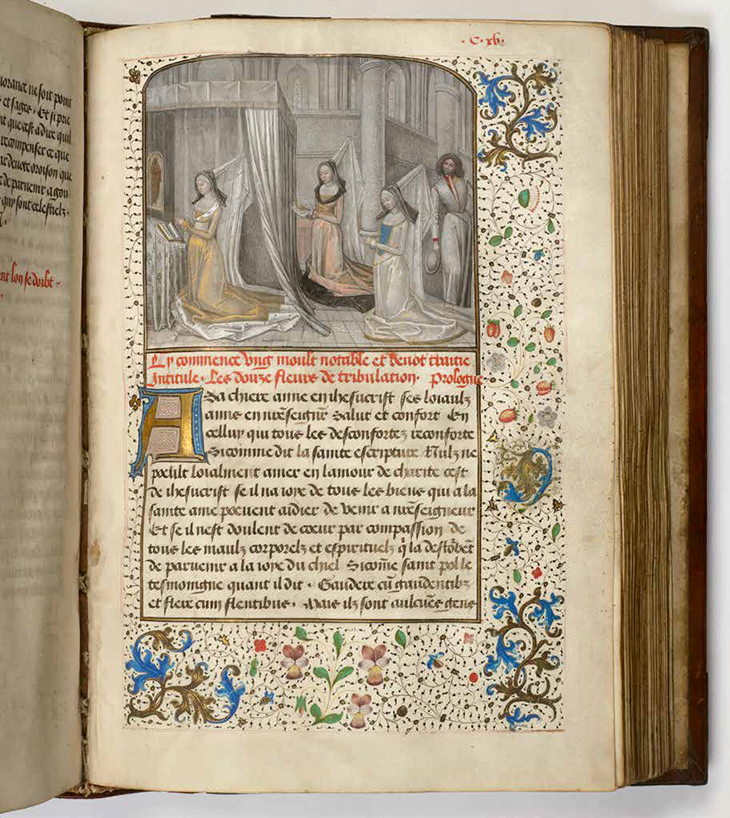 orance ne soit point
et sages. Et si prie
nt que cest a dire quil
recompenser ce que
devote oroison que
de parvenir a
qui sont celestielz.
nt lon se doibt.
C. xv
Cy commence vng moult notable et devot traitie
Intitule. Les douze fleurs de tribulation. Prologue
A Sa chiere amie en ihesucrist ses loiaulz
amis en nreseignr salut et confort En
celluy qui tous les desconfortez reconforte
Sicomme dit la sainte escripture Nulz ne
poeult loialment amer en lamour de charite cest
de ihesucrist se il na ioye de tous les biens qui a la
sainte ame poevent aidier de venir a nreseigneur
Et se il nest doulent de coeur par compassion de
tous les maulz corporelz et espirituelz q la destobent
de parvenir a la ioye du chiel Sicome saint pol le
tesmoingne quant il dit. Gaudere cu gaudentibz
et flere cum flentibus. Mais ilz sont aulcues gens